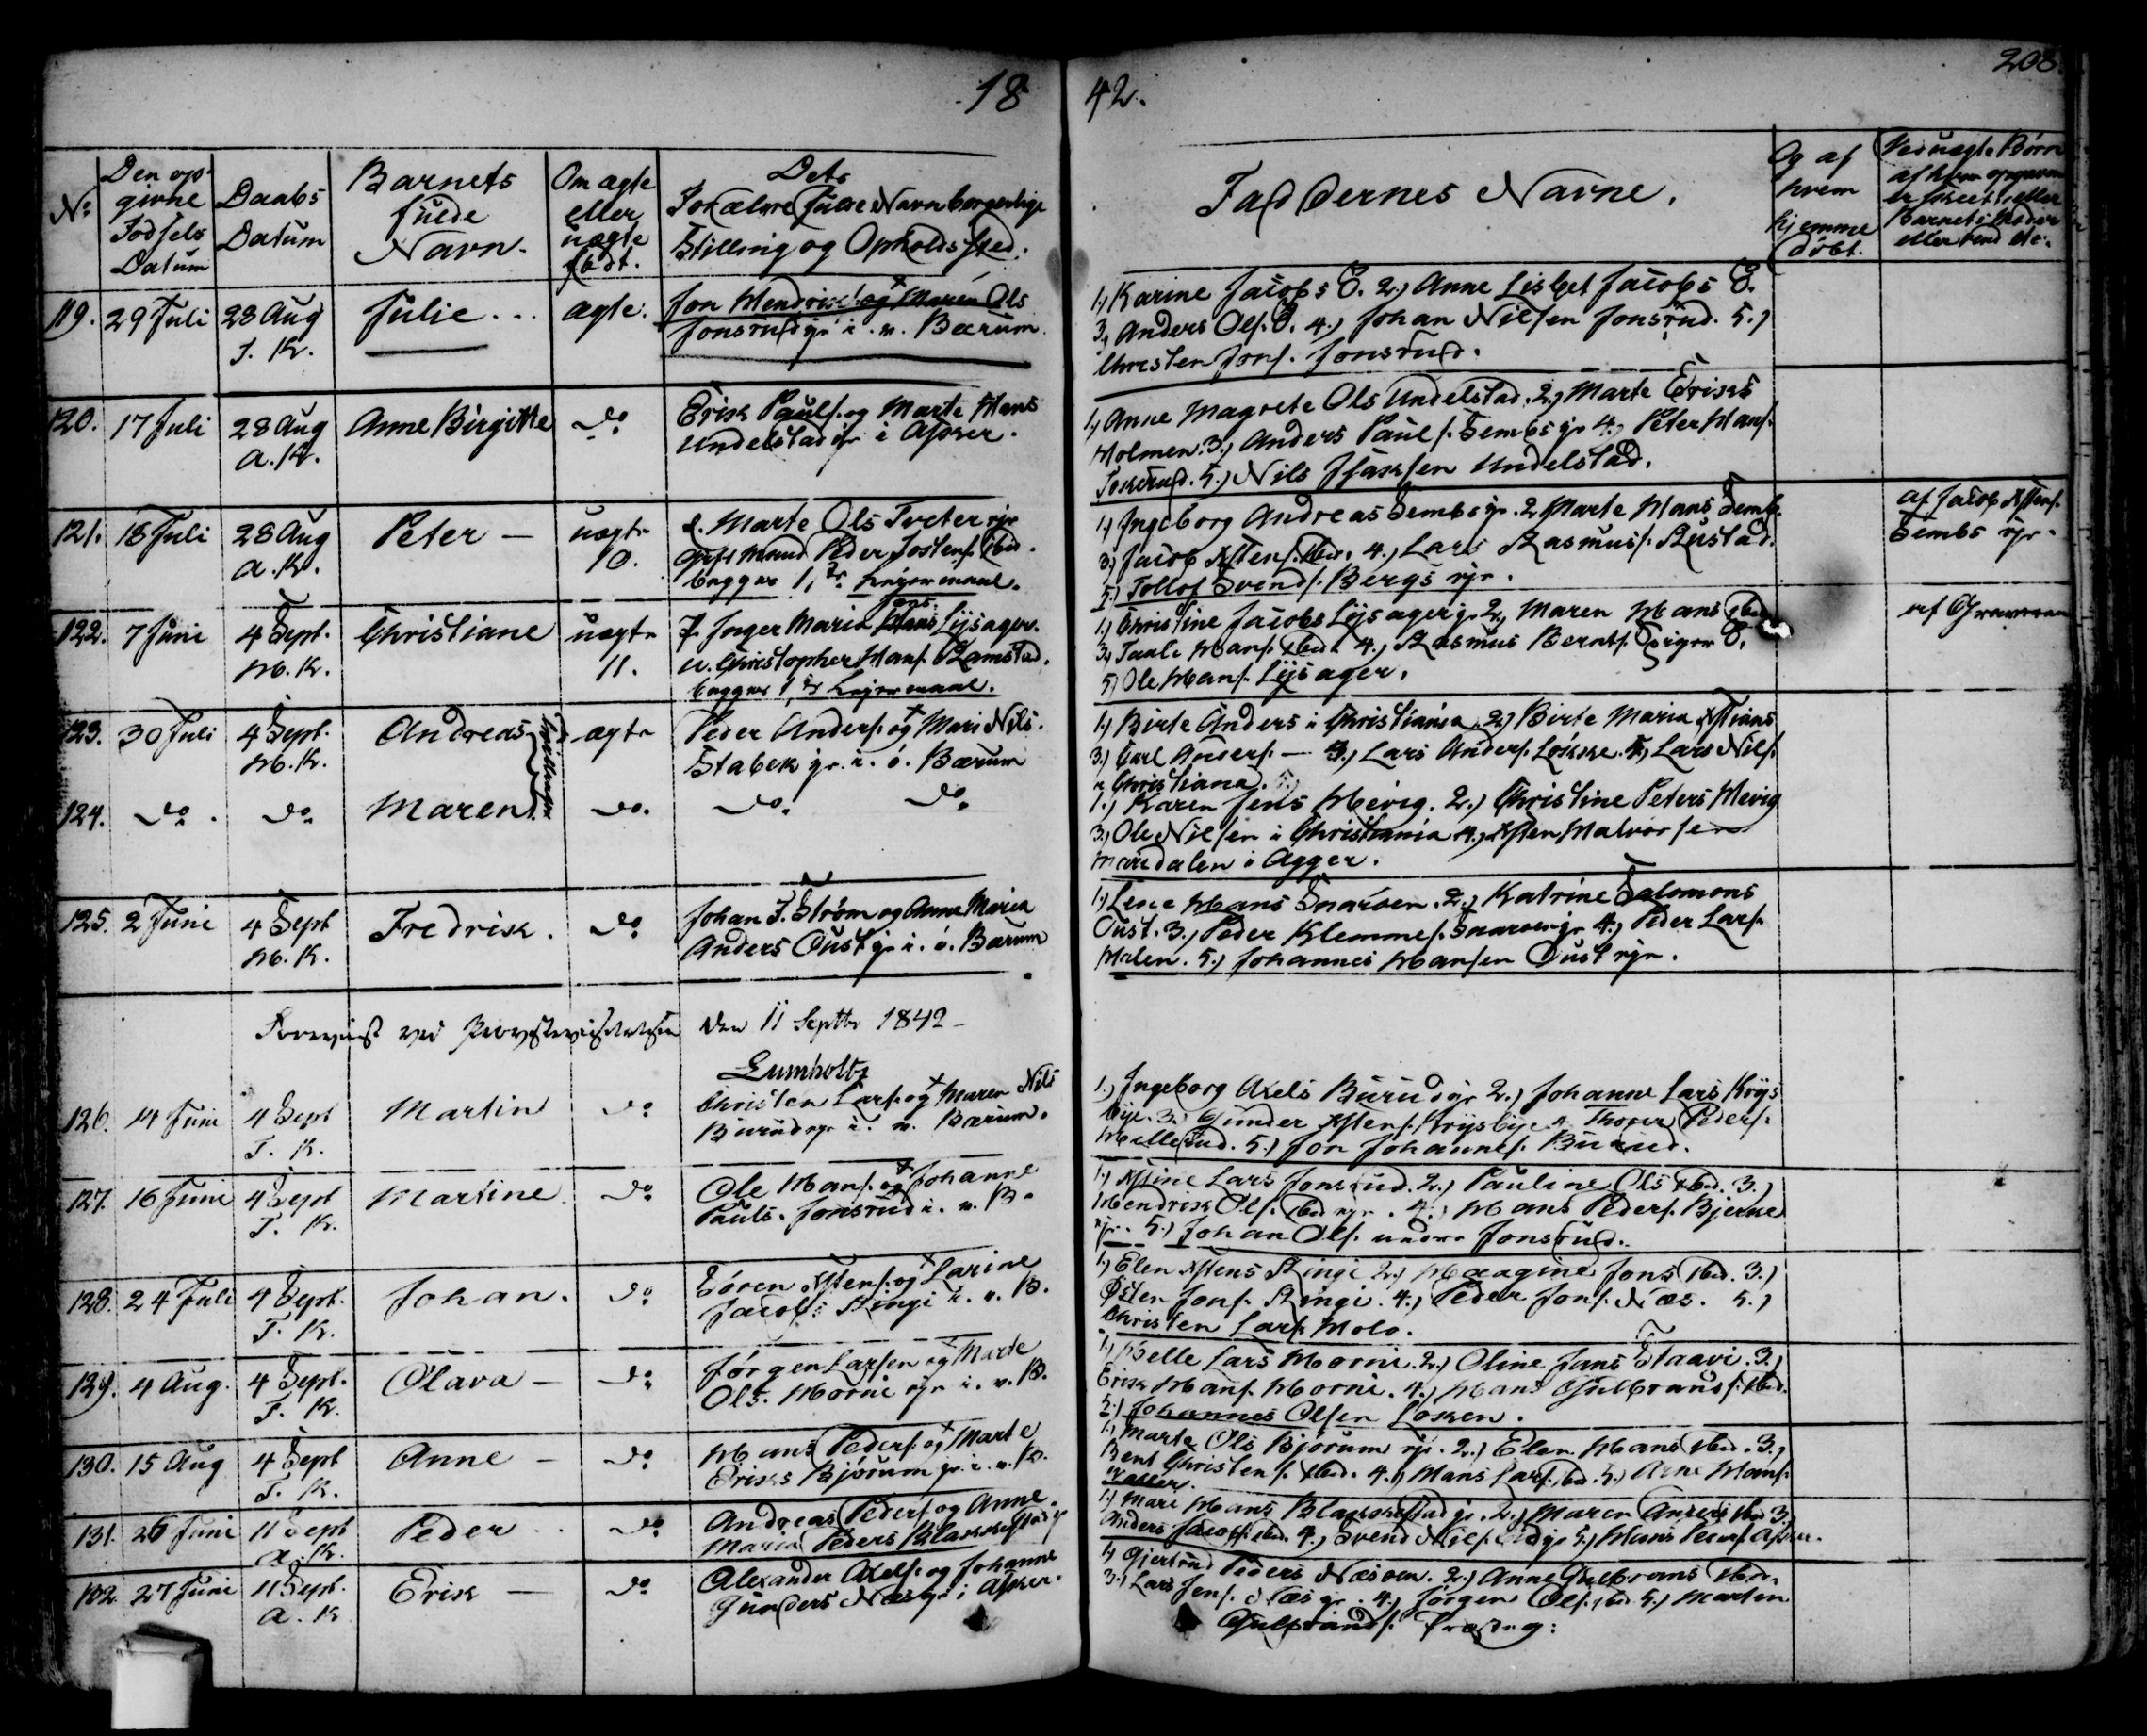 18
42.
208.
No
Den op-
givne
Fødsels
Datum
Daabs
Datum
Barnets
fulde
Navn.
Om ægte
eller
uægte
født.
Dets
Forældres fulde Navn borgerlige
Stilling og Opholdssted.
Faddernes Navne.
Og af
hvem
hjemme
døbt.
Ved uægte Børn
119. 29 Juli 28 Aug Julie ægte. Jon Hendriks. og Maren Ols
T. K. Jonsrud gr. i. v. Bærum.
1.) Karine Jacobs 2.) Anne Lisbet Jacobs
3.) Anders Ols. 4.) Johan Nilsen Jonsrud. 5.)
Christen Jons. Jonsrud.
120. 17 Juli 28 Aug Anne Birgitte do Erik Pauls. og Marte Hans
A. K. Undelstad gr. i Asker.
1.) Anne Magrete Ols Undelstad. 2.) Marte Eriks
Holmen. 3.) Anders Pauls. Sembs gr 4.) Peter Hans.
5.) Nils Isaksen Undelstad.
121. 18 Juli 28 Aug Peter uægte Marte Ols Tveter ejr
A. K. 10. gift Mand Peder Jostens. ibid.
begges 1ste Leiermaal.
1.) Ingeborg Andreas Sembs gr. 2. Marte Hans Semb.
3.) Jacob Xstens. ibid. 4.) Lars Rasmuss. Rustad.
5.) Tollof Svends. Bergs ejr.
af Jacob Xstens.
Sembs ejr.
122. 7 Juni 4 Sept. Christiane uægte P. Inger Maria Jens Lysager.
H. K. 11. U. Christopher Hans. Ramstad.
begges 1ste Leiermaal.
1.) Christine Jacobs Lysager gr 2.) Maren Hans ibid.
3.) Hans. ibid. 4.) Rasmus Bernts.
5.) Ole Hans. Lysager.
123. 30 Juli 4 Sept. Andreas ægte Peder Anders. og Mari Nils.
H. K. Stabek gr. i. ø. Bærum
Tvillinger
1.) Birte Anders i Christiania 2.) Birte Maria Xstians
3.) Carl Anders. — 4.) Lars Anders. Løkke. 5.) Lars Nils.
i Christiania.
124. do. do. Maren do. do. do.
1.) Karen Jens Hevig. 2.) Christine Peters Hevig
3.) Ole Nilsen i Christiania 4.) Xsten Halvorsen
Maridalen i Agger.
125. 2 Juni 4 Sept Fredrik. do Johan J. Strøm og Anne Maria
H. K. Anders Oust gr i. ø. Bærum
1.) Lene Hans Snarøen. 2.) Katrine Salomons
Oust. 3.) Peder Klemmes. Snarøen gr 4.) Peder Lars.
Holen. 5.) Johannes Hansen Oust ejr.
Foreviist ved Provstevisitatsen den 11 Septbr 1842
Lumholtz
126. 14 Juni 4 Sept Martin do Christen Lars. og Maren Nils
T. K. Burud ejr i. v. Bærum.
1.) Ingeborg Axels Burud gr 2.) Johanne Lars Krys
bye. 3.) Gunder Xstens. Krysbye 4. Peders.
5.) Jon Johannes. Burud.
127. 16 Juni 4 Sept Martine. do Ole Hans. og Johanne
T. K. Pauls. Jonsrud i. v. B.
1.) Xstine Lars Jonsrud. 2.) Pauline Ols ibid. 3.)
Hendrik Ols. ibid ejr. 4.) Hans Peders. Bjerke
ejr. 5.) Johan Ols. nedre Jonsrud.
128. 24 Juli 4 Sept. Johan. do Søren Xstens. og Larine
T. K. Jacobs Ringi i. v. B.
1.) Elen Xstens Ringi 2.) Jons ibid. 3.)
Østen Jons. Ringi. 4.) Peder Jons. Næs. 5.)
Christen Lars. Molo.
129. 4 Aug. 4 Sept. Olava — do Jørgen Larsen og Marte
T. K. Ols. Horni ejr i. v. B.
1.) Helle Lars Horni. 2.) Oline Jans Staavi. 3.)
Erik Hans. Horni. 4.) Hans Gulbrands. ibid.
5.) Johannes Olsen Løken.
130. 15 Aug 4 Sept Anne — do Hans Peders. og Marte
T. K. Eriks Bjørum gr. i. v. B.
1.) Marte Ols Bjørum ejr. 2.) Elen Hans ibid. 3.)
Bent Christens. ibid. 4.) Hans Lars. ibid. 5.) Arne Hans.
131. 26 Juni 11 Sept Peder do Andreas Peders. og Anne
A. K. Maria Peders Blakkestad gr
1.) Mari Hans Blakkestad gr. 2.) Maren Anders ibid 3.)
Anders Jacobs. ibid. 4.) Svend Nils. 5.) Hans Peders. Asker.
132 27 Juni 11 Sept. Erik — do Alexander Axels. og Johanne
A. K Gunders Næs gr i Asker.
1.) Gjertrud Peders Næsøen. 2.) Anne Gulbrans ibid.
3.) Lars Jens. Næs gr. 4.) Jørgen Ols. ibid 5.) Marten
Gulbrands.